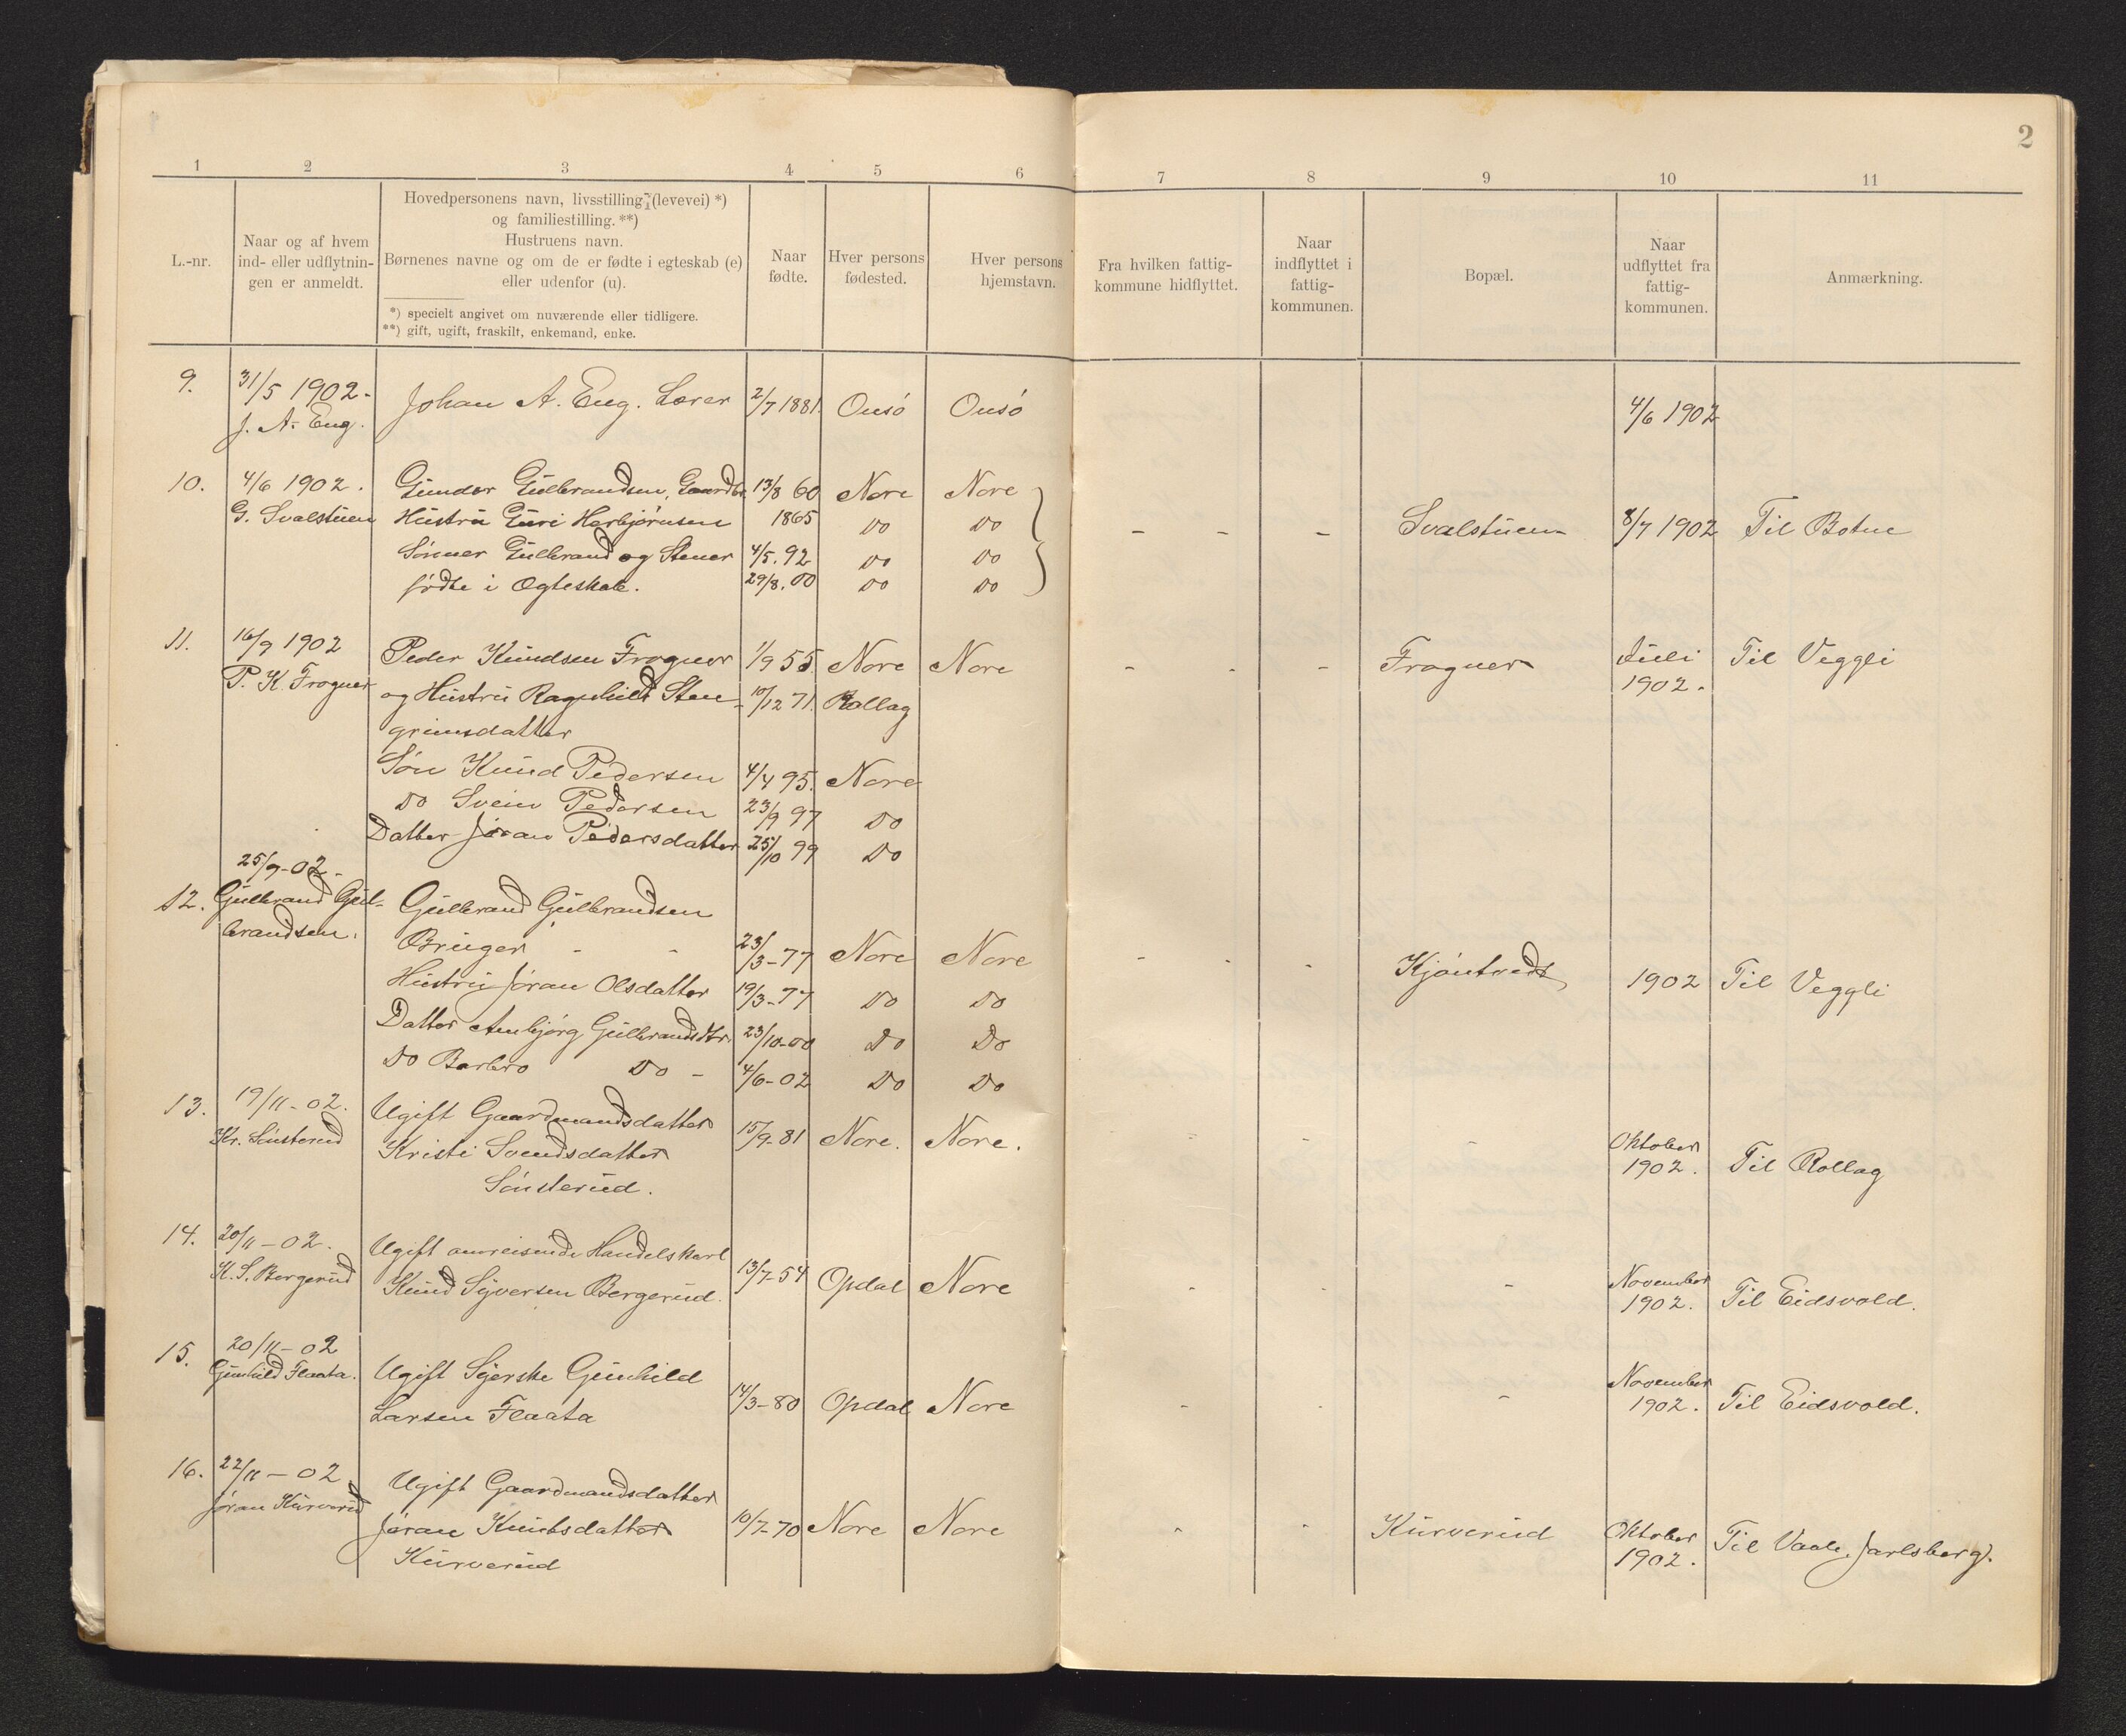 2
1 2 3 4 5 6 7 8 9 10 11
L.-nr.
Naar og af hvem
ind- eller udflytnin-
gen er anmeldt.
Hovedpersonens navn, livsstilling (levevei) *)
og familiestilling. **)
Hustruens navn.
Børnenes navne og om de er fødte i egteskab (e)
eller udenfor (u).
*) specielt angivet om nuværende eller tidligere.
**) gift, ugift, fraskilt, enkemand, enke.
Naar
fødte.
Hver persons
fødested.
Hver persons
hjemstavn.
Fra hvilken fattig-
kommune hidflyttet.
Naar
indflyttet i
fattig-
kommunen.
Bopæl.
Naar
udflyttet fra
fattig-
kommunen.
Anmærkning.
9. 31/5 1902. Johan A. Eng. Lærer 2/7 1881. Onsö Onsö 4/6 1902
J. A. Eng.
10. 4/6 1902. Gunder Gulbrandsen, Gaardbr. 13/8 60 Nore Nore
G. Svalstuen Hustru Guri Herbjørnsen 1865 Do Do - - - Svalstuen 8/7 1902 Til Botne
Sönner Gulbrand og Stener 4/5. 92 Do Do
födte i Ægteskab. 29/8. 00 Do Do
11. 16/9 1902 Peder Knudsen Frogner 1/9 55. Nore Nore - - - Frogner Juli Til Veggli
P. K. Frogner og Hustru Ragnhild Sten- 10/12 71. Rollag 1902.
grimsdatter
Sön Knud Pedersen 4/4 95. Nore
Do Svein Pedersen 23/9 97 Do
Datter Jöran Pedersdatter 25/10 99 Do
25/9-02-
12. Gulbrand Gul- Gulbrand Gulbrandsen
brandsen. Bruger - - 23/3-77 Nore Nore - - - Kjöntvedt 1902 Til Veggli
Hustru Jöran Olsdatter 19/3-77 Do Do
Datter Anbjørg Gulbrandsdtr 23/10-00 Do Do
Do Barbro Do - 4/6-02 Do Do
13. 19/11-02. Ugift Gaardmandsdatter
Kr. Sönsterud Kristi Svendsdatter 15/9-81 Nore. Nore. Oktober
1902. Til Rollag
Sönsterud.
14. 20/11-02. Ugift omreisende Handelskarl
K. S. Bergerud Knud Syversen Bergerud. 13/7-54 Opdal Nore November
1902. Til Eidsvold.
15. 20/11-02
Gunhild Flaata. Ugift Syerske Gunhild
Larsen Flaata 14/3-80 Opdal Nore November
1902. Til Eidsvold.
16. 22/11-02 Ugift Gaardmandsdatter
Jöran Kurverud Jöran Knutsdatter 10/7-70 Nore Nore Kurverud Oktober
1902. Til Vaale, Jarlsberg.
Kurverud